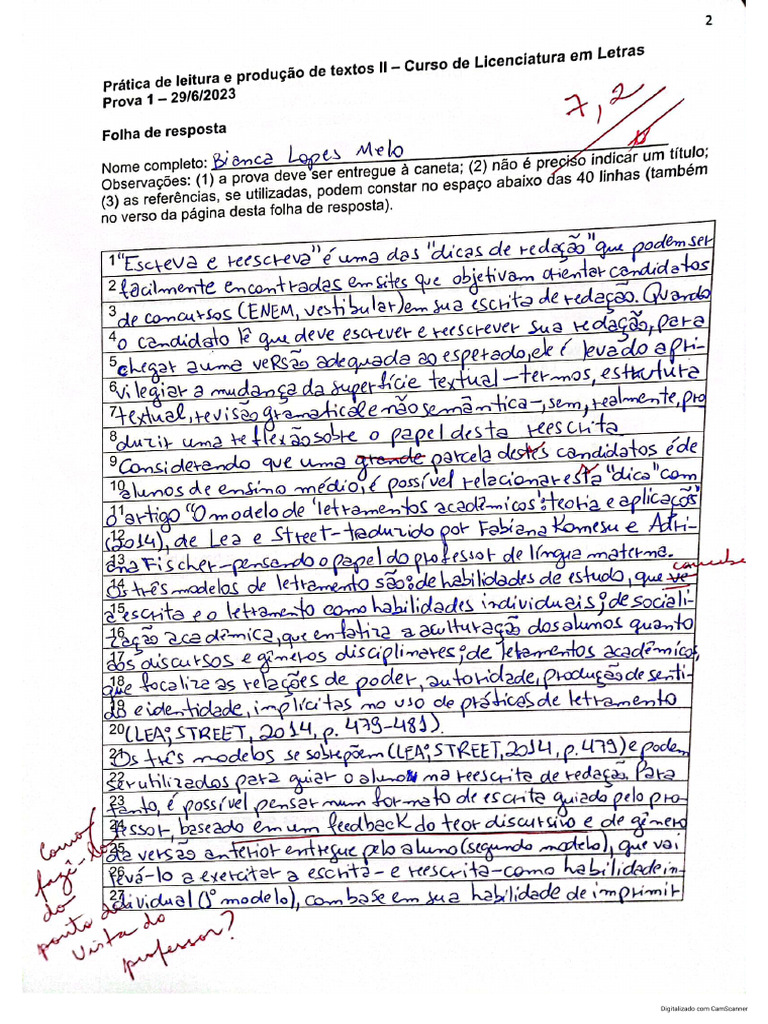 2
Prática de leitura e produção de textos II – Curso de Licenciatura em Letras
Prova 1 – 29/6/2023
7,2
Folha de resposta
Nome completo: Bianca Lopes Melo
Observações: (1) a prova deve ser entregue à caneta; (2) não é preciso indicar um título;
(3) as referências, se utilizadas, podem constar no espaço abaixo das 40 linhas (também
no verso da página desta folha de resposta).
1 "Escreva e reescreva" é uma das "dicas de redação" que podem ser
2 facilmente encontradas em sites que objetivam orientar candidatos
3 de concursos (ENEM, vestibular) em sua escrita de redação. Quando
4 o candidato lê que deve escrever e reescrever sua redação, para
5 chegar a uma versão adequada ao esperado, ele é levado a pri-
6 vilegiar a mudança da superfície textual – termos, estrutura
7 textual, revisão gramatical e não semântica –, sem, realmente, pro
8 duzir uma reflexão sobre o papel desta reescrita
9 Considerando que uma grande parcela destes candidatos é de
10 alunos de ensino médio, é possível relacionar esta "dica" com
11 o artigo "O modelo de 'letramentos acadêmicos': teoria e aplicações"
12 (2014), de Lea e Street – traduzido por Fabiana Komesu e Adri-
13 ana Fischer – pensando o papel do professor de língua materna.
14 Os três modelos de letramento são: de habilidades de estudo, que vê concebe
15 a escrita e o letramento como habilidades individuais; de sociali-
16 zação acadêmica, que enfatiza a aculturação dos alunos quanto
17 aos discursos e gêneros disciplinares; de letramentos acadêmicos,
18 que focaliza as relações de poder, autoridade, produção de senti-
19 do e identidade, implícitas no uso de práticas de letramento
20 (LEA; STREET, 2014, p. 479-481).
21 Os três modelos se sobrepõem (LEA; STREET, 2014, p. 479) e podem
22 ser utilizados para guiar o aluno na reescrita de redação. Para
23 tanto, é possível pensar num formato de escrita guiado pelo pro-
24 fessor, baseado em um feedback do teor discursivo e de gênero
25 da versão anterior entregue pelo aluno (segundo modelo), que vai
26 levá-lo a exercitar a escrita – e reescrita – como habilidade in-
27 dividual (1º modelo), com base em sua habilidade de imprimir
Como
fazê-lo
do
ponto de
vista do
professor?
Digitalizado com CamScanner